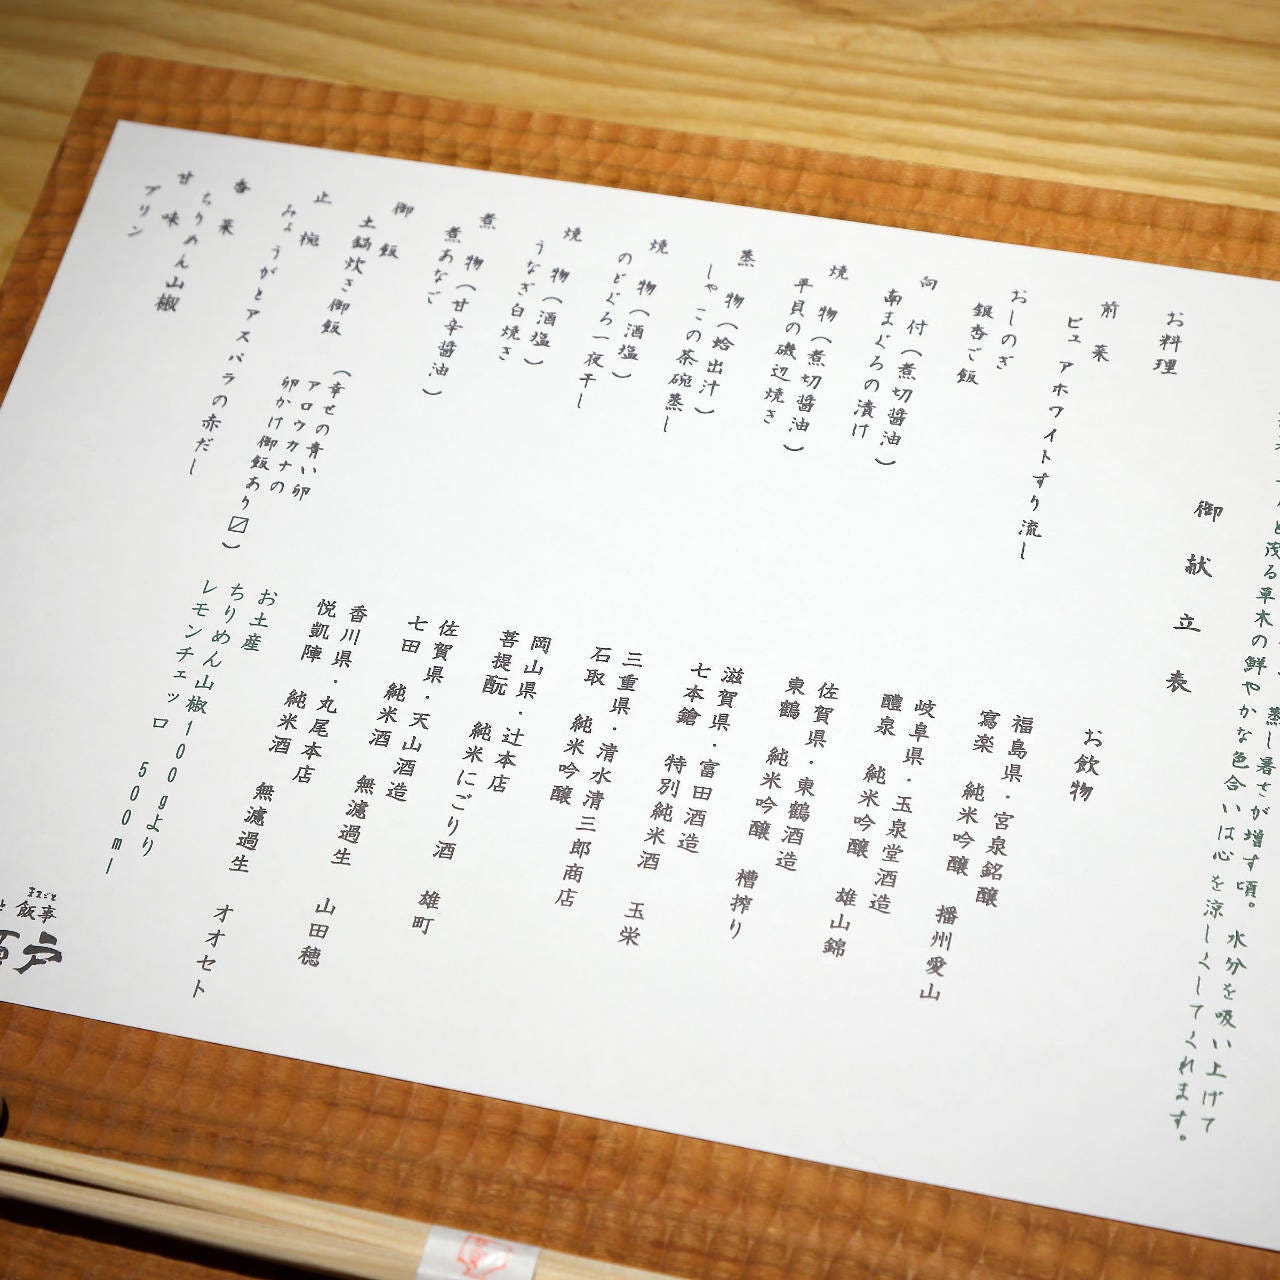 茂る草木の鮮やかな色合いは心を涼しくしてくれます。
蒸し暑さが増す頃。水分を吸い上げて
御献立表
お料理
前菜
ピュアホワイトすり流し
おしのぎ
銀杏ご飯
向付(煮切醤油)
南まぐろの漬け
焼物(煮切醤油)
平貝の磯辺焼き
蒸物(蛤出汁)
しゃこの茶碗蒸し
焼物(酒塩)
のどぐろ一夜干し
焼物(酒塩)
うなぎ白焼き
煮物(甘辛醤油)
煮あなご
御飯
土鍋炊き御飯
(幸せの青い卵
アロウカナの
卵かけ御飯あり〼)
止椀
みょうがとアスパラの赤だし
香菜
ちりめん山椒
甘味
プリン
お飲物
福島県・宮泉銘醸
寫楽 純米吟醸 播州愛山
岐阜県・玉泉堂酒造
醴泉 純米吟醸 雄山錦
佐賀県・東鶴酒造
東鶴 純米吟醸 槽搾り
滋賀県・富田酒造
七本鎗 特別純米酒 玉栄
三重県・清水清三郎商店
石取 純米吟醸
岡山県・辻本店
菩提酛 純米にごり酒 雄町
佐賀県・天山酒造
七田 純米酒 無濾過生 山田穂
香川県・丸尾本店
悦凱陣 純米酒 無濾過生 オオセト
お土産
ちりめん山椒100gより
レモンチェッロ 500ml
まるごと
飯事